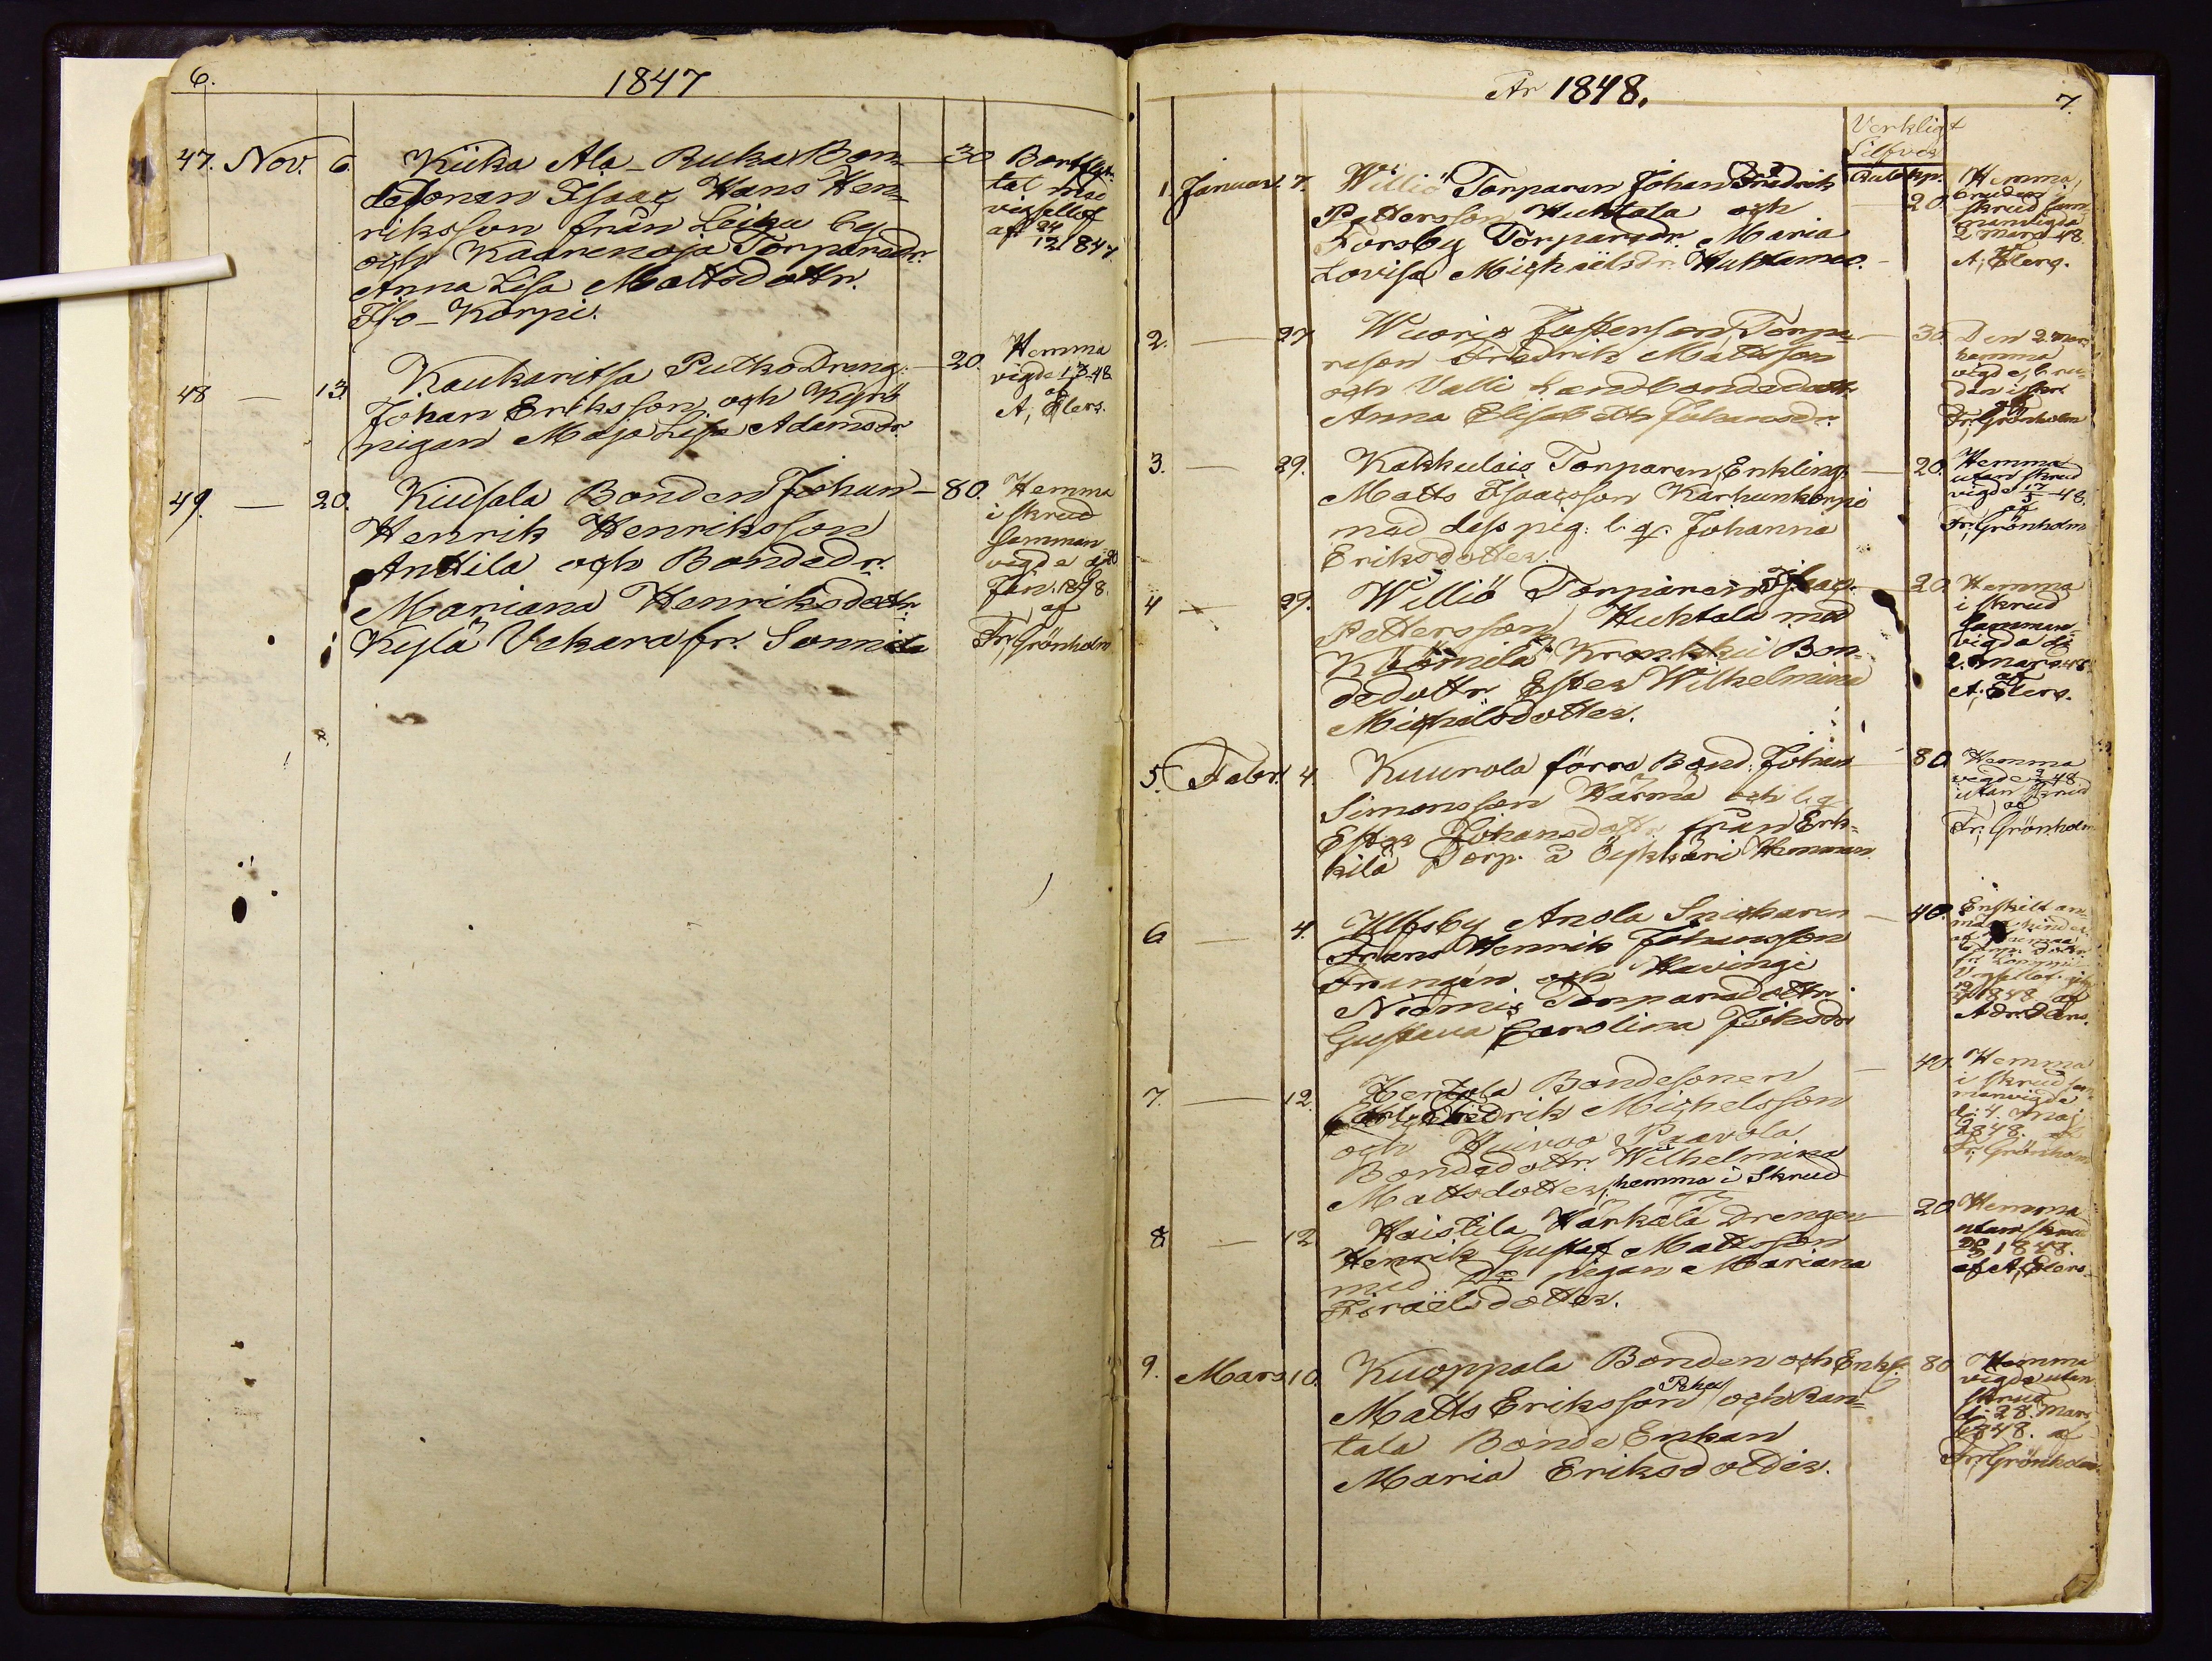 6.
1847
47. Nov. 6. Kiika Ala-Ruka Bon- 30
desonen Isaac Hans Hen-
riksson från Leiku by
och Kaarenoja Torparedr.
Anna Lisa Mattsdottr.
Iso-Korpi.
vigsellof
af 24/12 1847.
48 — 13 Kaukaritsa Putko Dreng. 20.
Johan Eriksson och Kyrö
pigan Maja Lisa Adamsdr.
Hemma
vigde 1/3 48
af
A. Elers.
49. — 20. Kiusala Bonden Johan 80.
Henrik Henriksson
Anttila och Bondedr.
Mariana Henriksdottr.
Kylä Vekara fr. Sonnila
Hemma
i skrud
samman
vigde
Jan. 1848.
af
Fr. Grönholm
År 1848.
7.
Verkligt
Silfver
Rub. Kp.
1. Januar. 7. Williö Torparen Johan Fredrik 20.
Pettersson Huhtala och
Forsby Torparedr. Maria
Lovisa Michaelsdr. Huhtamaa.
Hemma,
bruden i
skrud sam-
manvigda
2 Mars 48
af
A. Elerq.
2. — 27 Wuorio Justerson Torpa- 30.
reson Fredrik Mattsson
och Valli Landbondedottr.
Anna Elisabeth Johansdr.
Den 2 Mars
hemma
vigde, bru-
den i skr.
af
Fr. Grönholm
3. — 29. Kakkulais Torparen, Enkling. 20.
Matts Isaacsson Karhunkorpi
med dess pig. l. q. Johanna
Eriksdotter.
Hemma
utan skrud
vigde 17/3 48.
af
Fr. Grönholm
4 — 29. Williö Torparen Isaac 20
Pettersson Huhtala med
Klömilä Kronkkii Bon-
dedottr. Ester Wilhelmina
Michelsdotter.
Hemma
i skrud
samman-
vigda d.
2. Mars 48.
af
A. Elerq.
5. Febr. 4. Kuurola förra Bond. Johan 80
Simonsson Härmä och l. q.
Ester Johansdottr. från Erk-
kilä Torp. å Öyskkäri Hemman
Hemma
vigde 2/3 48
utan skrud
af
Fr. Grönholm
6 — 4. Ylfsby Anola Snickaren 40.
Frans Henrik Johansson
Frangén och Havingi
Niemis Torparedottr.
Gustava Carolina Jöksdr
Enskilt
1848 af
7. — 12. Hertola Bondesonen 40.
Carl Fredrik Michelsson
och Kuivas Paavola
Bondedottr. Wilhelmina
Mattsdotter, hemma i Skrud
Hemma
i skrud sam-
manvigde
d. 4. Maj
1848. af
Fr. Grönholm
8 — 12 Haistila Härkälä Drengen 20
Henrik Gustaf Mattsson
med Do pigan Mariana
Israelsdotter.
Hemma
utan skrud
1848.
af A. Elers
9. Mars 10. Kuoppala Bonden och Enkl. 80
Matts Eriksson Peka och Ran-
tala Bonde Enkan
Maria Eriksdotter.
Hemma
vigde utan
skrud
d. 28. Mars
1848. af
Fr. Grönholm